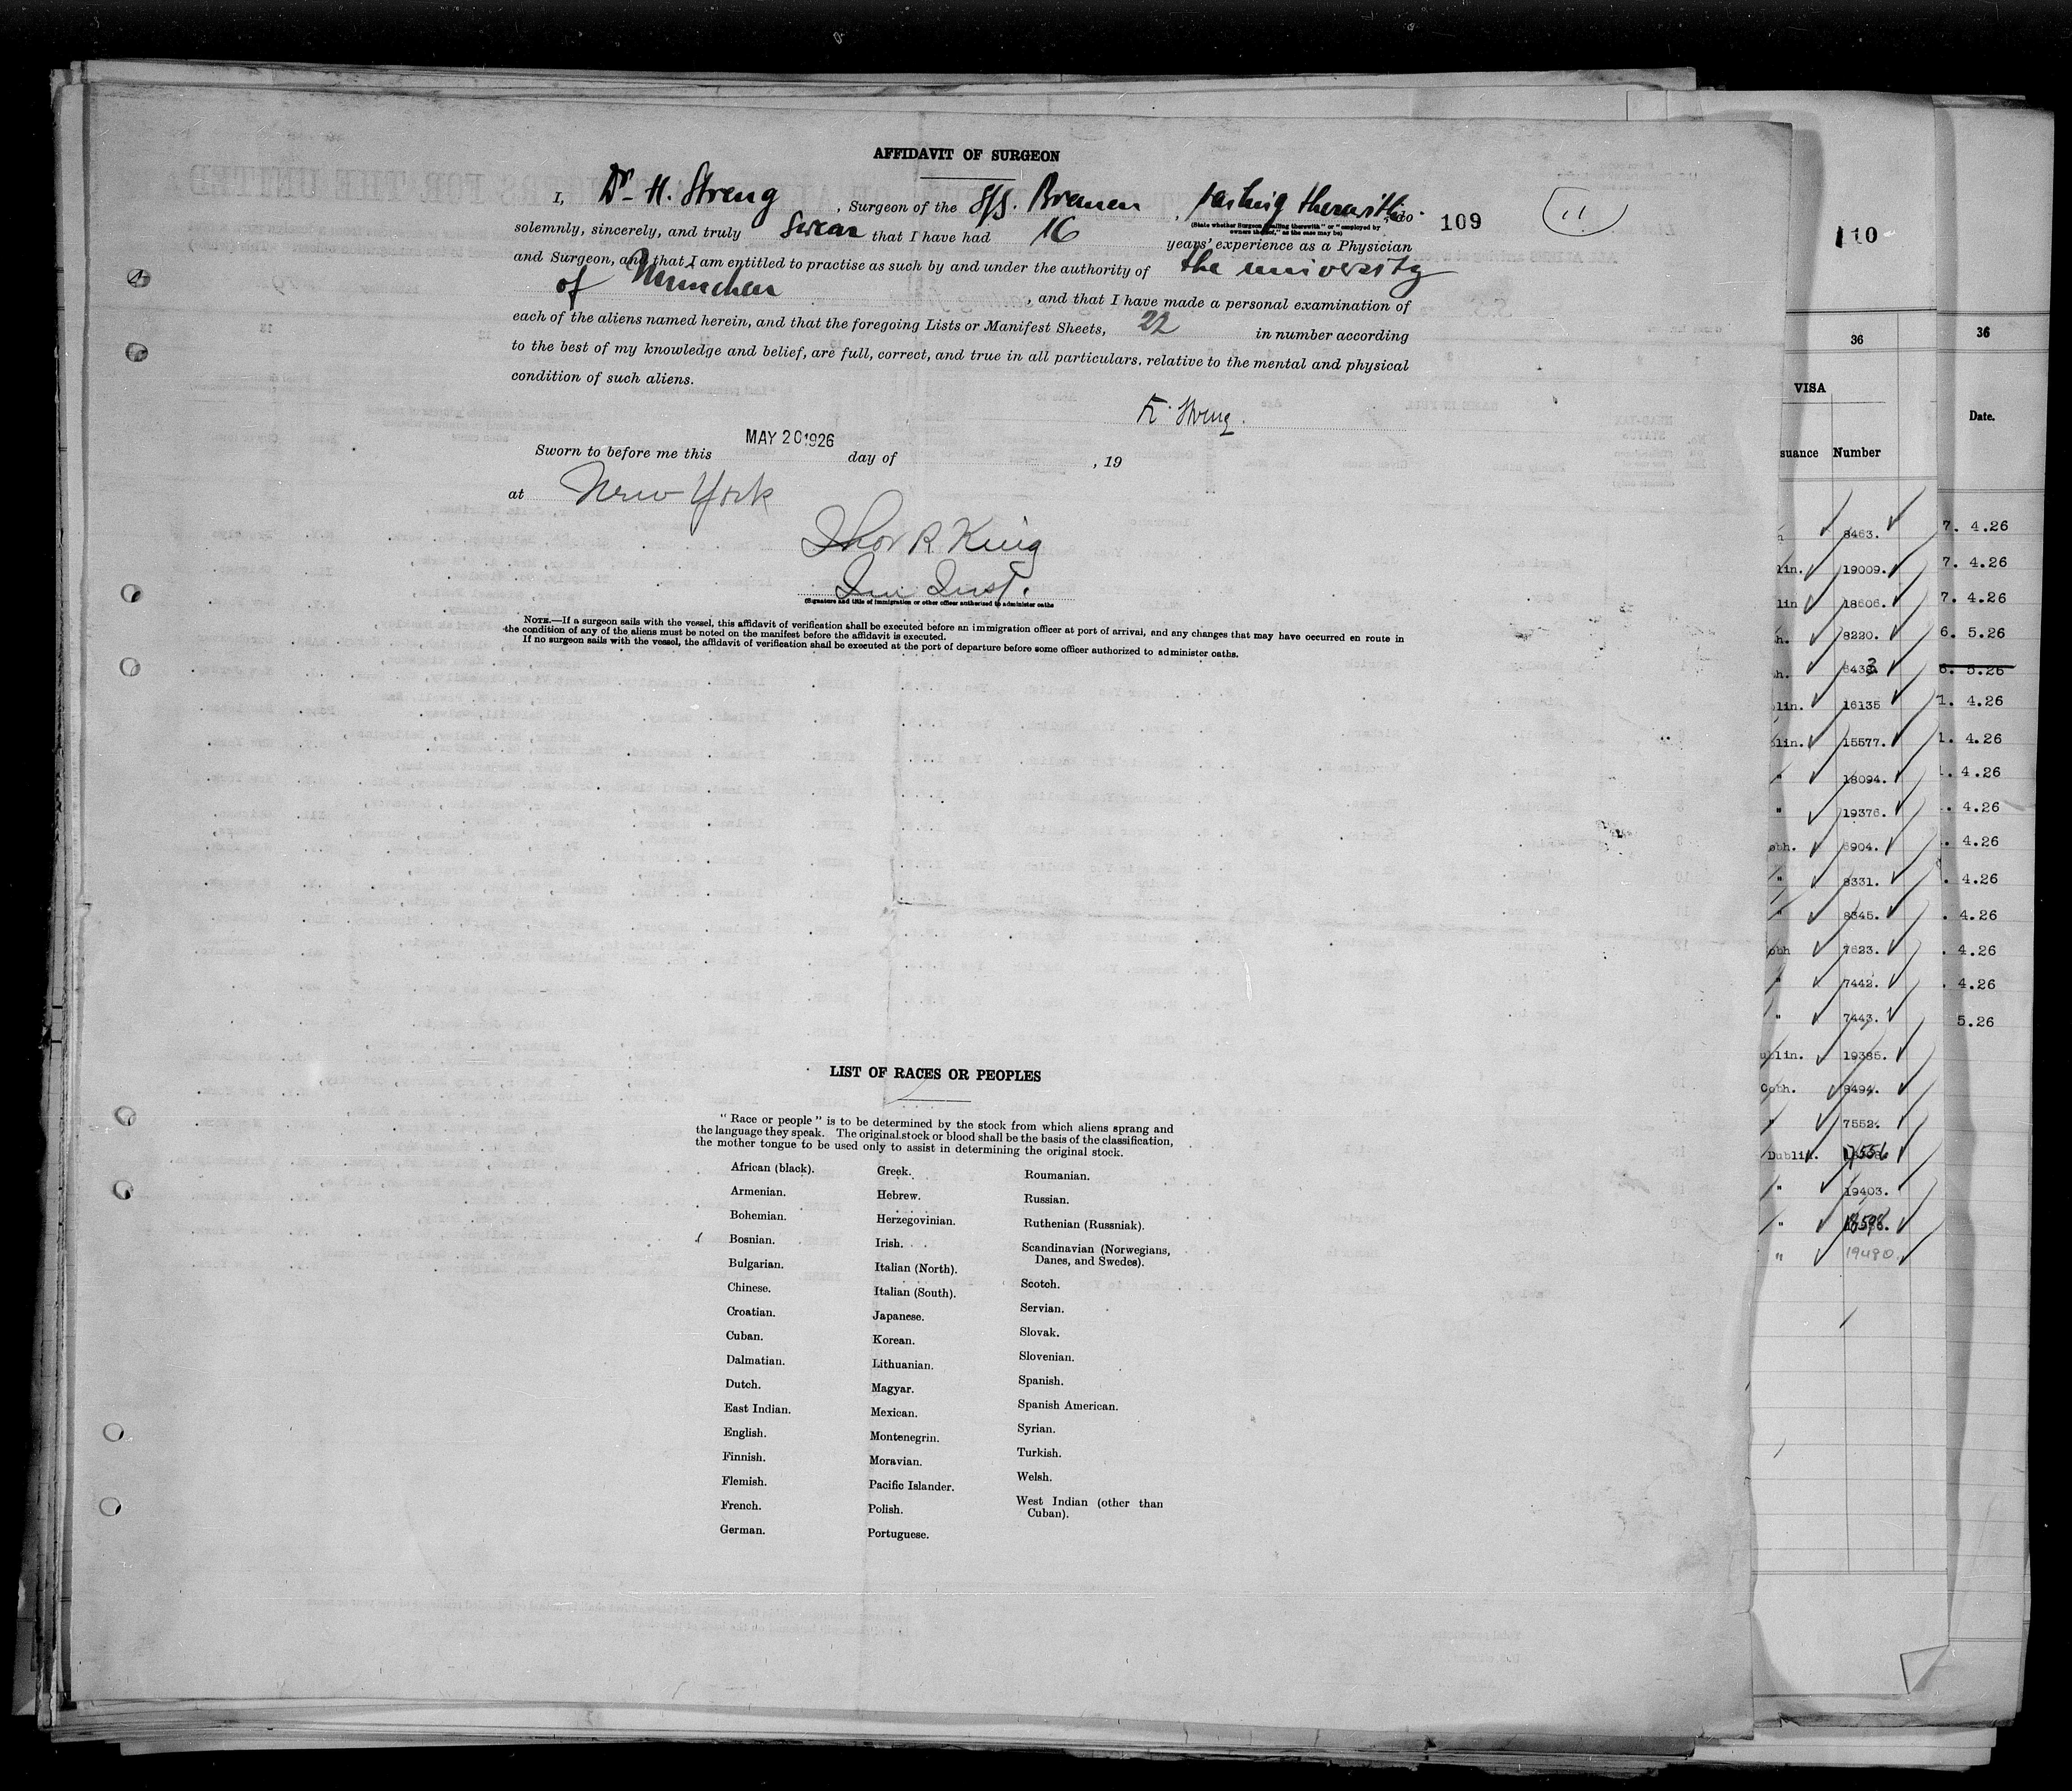 AFFIDAVIT OF SURGEON
I, Dr. H. Streng, Surgeon of the S/S. Bremen, sailing therewith, do
(State whether Surgeon "sailing therewith" or "employed by owners thereof," as the case may be)
109
11
110
solemnly, sincerely, and truly swear that I have had 16 years' experience as a Physician
and Surgeon, and that I am entitled to practise as such by and under the authority of the university
of München, and that I have made a personal examination of
each of the aliens named herein, and that the foregoing Lists or Manifest Sheets, 22 in number according
to the best of my knowledge and belief, are full, correct, and true in all particulars, relative to the mental and physical
condition of such aliens.
Streng.
Sworn to before me this MAY 20 1926 day of , 19
at New York
King
(Signature and title of immigration or other officer authorised to administer oaths
NOTE.—If a surgeon sails with the vessel, this affidavit of verification shall be executed before an immigration officer at port of arrival, and any changes that may have occurred en route in
the condition of any of the aliens must be noted on the manifest before the affidavit is executed.
If no surgeon sails with the vessel, the affidavit of verification shall be executed at the port of departure before some officer authorized to administer oaths.
LIST OF RACES OR PEOPLES
"Race or people" is to be determined by the stock from which aliens sprang and
the language they speak. The original stock or blood shall be the basis of the classification,
the mother tongue to be used only to assist in determining the original stock.
African (black).
Armenian.
Bohemian.
Bosnian.
Bulgarian.
Chinese.
Croatian.
Cuban.
Dalmatian.
Dutch.
East Indian.
English.
Finnish.
Flemish.
French.
German.
Greek.
Hebrew.
Herzegovinian.
Irish.
Italian (North).
Italian (South).
Japanese.
Korean.
Lithuanian.
Magyar.
Mexican.
Montenegrin.
Moravian.
Pacific Islander.
Polish.
Portuguese.
Roumanian.
Russian.
Ruthenian (Russniak).
Scandinavian (Norwegians,
Danes, and Swedes).
Scotch.
Servian.
Slovak.
Slovenian.
Spanish.
Spanish American.
Syrian.
Turkish.
Welsh.
West Indian (other than
Cuban).
36
VISA
suance Number
8463.
lin. 19009.
lin 18606.
h. 8220.
h.
lin. 16135
lin. 15577.
" 18094.
" 19376.
obh. 6904.
" 8331.
" 8345.
obh 7623.
" 7442.
" 7443.
ublin. 19385.
Cobh. 8494.
" 7552.
Dublin.
" 19403.
"
" 19480
36
Date.
7. 4.26
7. 4.26
7. 4.26
6. 5.26
6. 5.26
1. 4.26
1. 4.26
1. 4.26
. 4.26
. 4.26
. 4.26
. 4.26
. 4.26
. 4.26
5.26